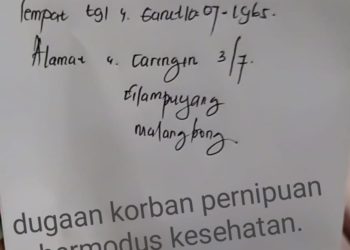 Tempat tgl
07-1965.
Alamat : Caringin 3/7.
Cilampuyang
malangbong
dugaan korban pernipuan
bermodus kesehatan.